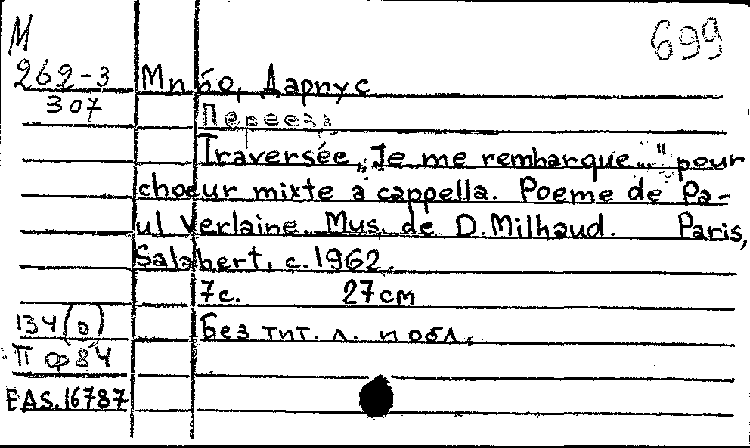 М 699
262-3 Мийо, Дариус
307 Переезд
Traversée „Je me rembarque..." pour
choeur mixte a cappella. Poeme de Pa-
ul Verlaine. Mus. de D.Milhaud. Paris,
Salabert, c.1962.
7с. 27см
134(0) Без тит. л. и обл.
П ф84
EAS.16787